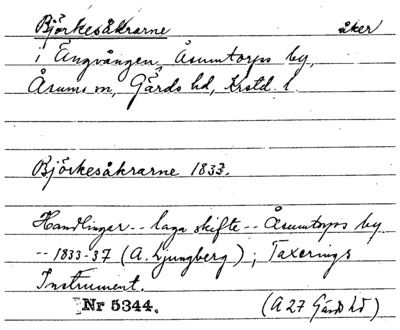 Björkesåkrarne åker
i Ängvången, Åsumtorps by,
Åsums sn, Gärds hd, Krstd. l.
Björkesåkrarne 1833.
Handlingar -- laga skifte -- Åsumtorps by
-- 1833-37 (A. Ljungberg); Taxerings
Instrument.
Nr 5344. (A 27 Gärds hd)